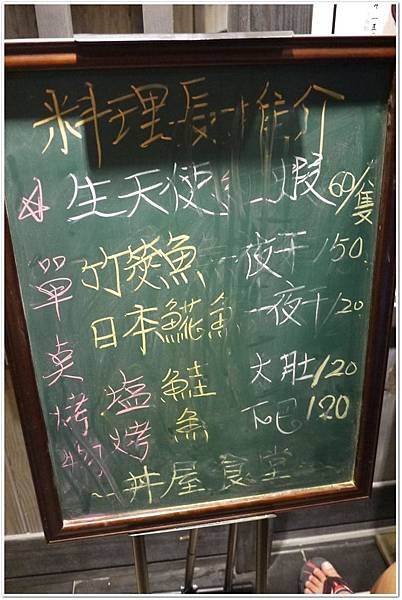 料理長推介
☆生天使紅蝦 60/隻
單点烤物
竹筴魚一夜干 150
日本𩸽魚一夜干 120
塩烤鮭魚
大肚 120
下巴 120
~丼屋食堂~